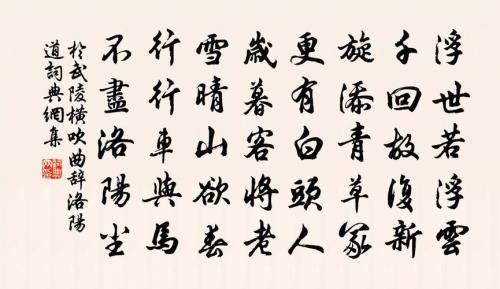 浮世若浮雲
千回故復新
旋添青草冢
更有白頭人
歲暮客將老
雪晴山欲春
行行車與馬
不盡洛陽尘
於武陵橫吹曲辭洛陽
道詞典網集